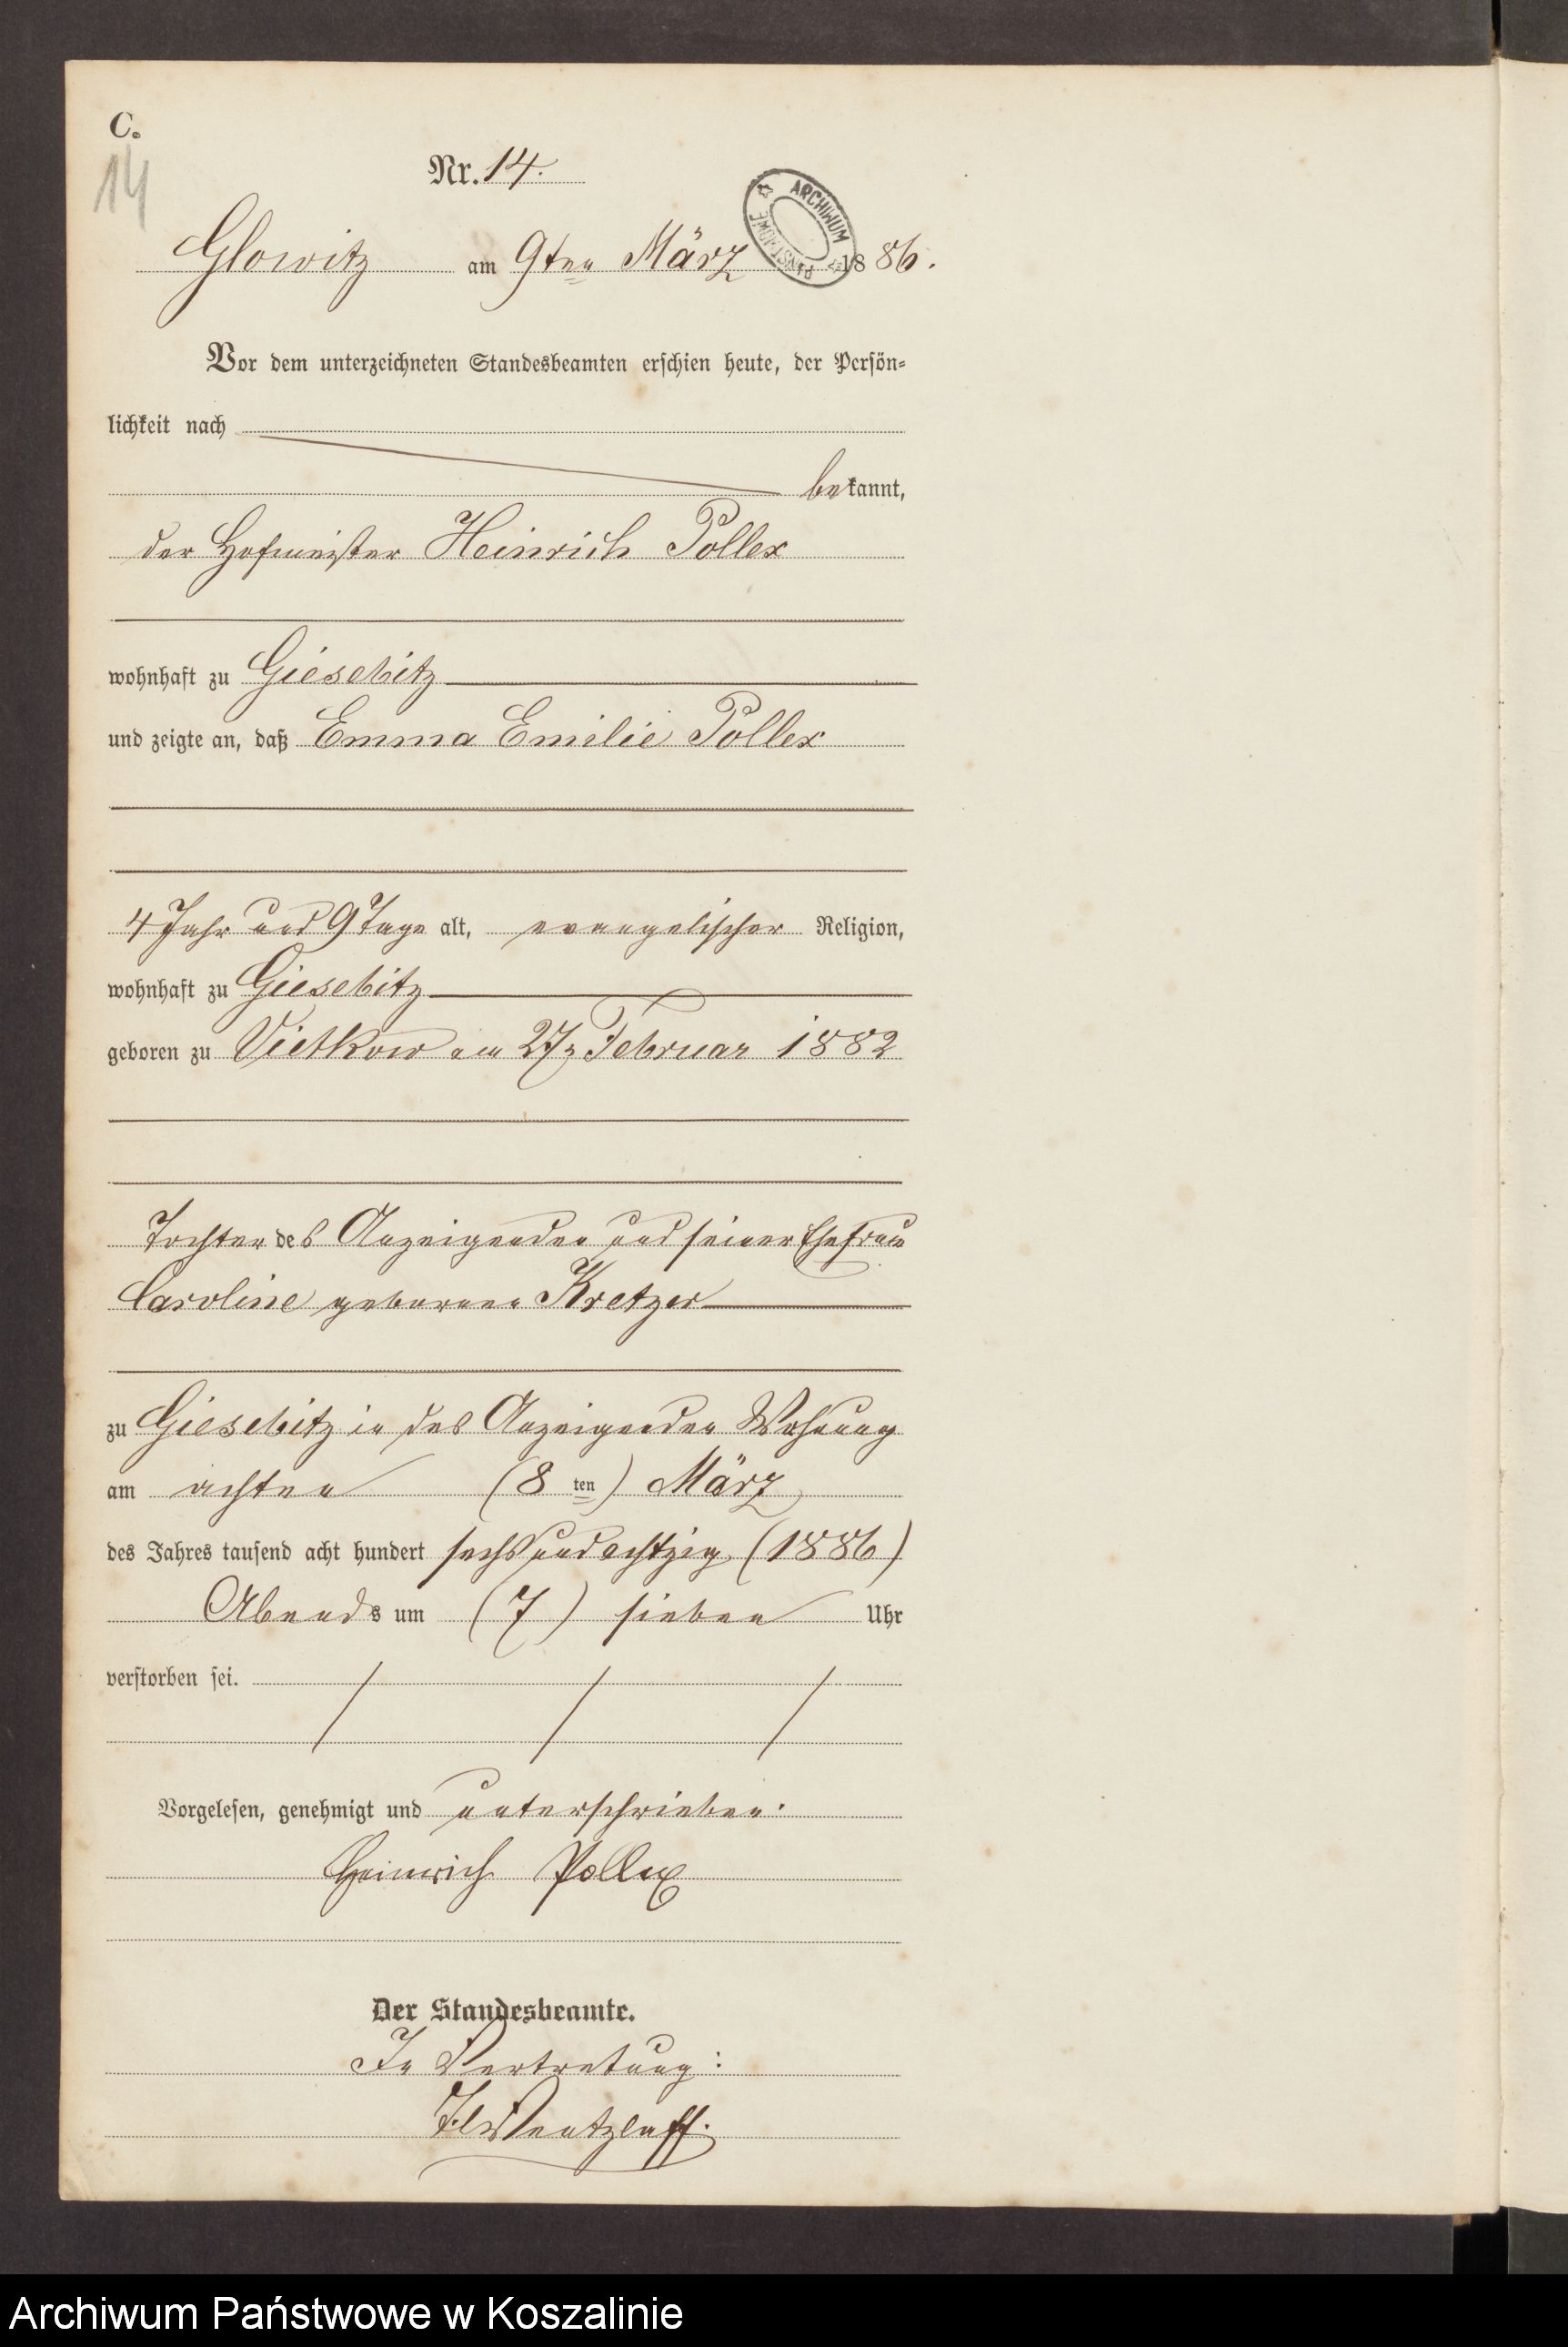 C.
14
Nr. 14.
ARCHIWUM PAŃSTWOWE
Glowitz am 9ten März 1886.
Vor dem unterzeichneten Standesbeamten erschien heute, der Persön-
lichkeit nach
bekannt,
der Hofmeister Heinrich Pollex
wohnhaft zu Giesebitz
und zeigte an, daß Emma Emilie Pollex
4 Jahr und 9 Tage alt, evangelischer Religion,
wohnhaft zu Giesebitz
geboren zu Vietkow am 27. Februar 1882
Tochter des Anzeigenden und seiner Ehefrau
Caroline geborenen Kretzer
zu Giesebitz in des Anzeigenden Wohnung
am achten (8 ten) März
des Jahres tausend acht hundert sechs und achtzig (1886)
Abends um (7) sieben Uhr
verstorben sei.
Vorgelesen, genehmigt und unterschrieben:
Heinrich Pollex
Der Standesbeamte.
In Vertretung:
Wentzlaff.
Archiwum Państwowe w Koszalinie